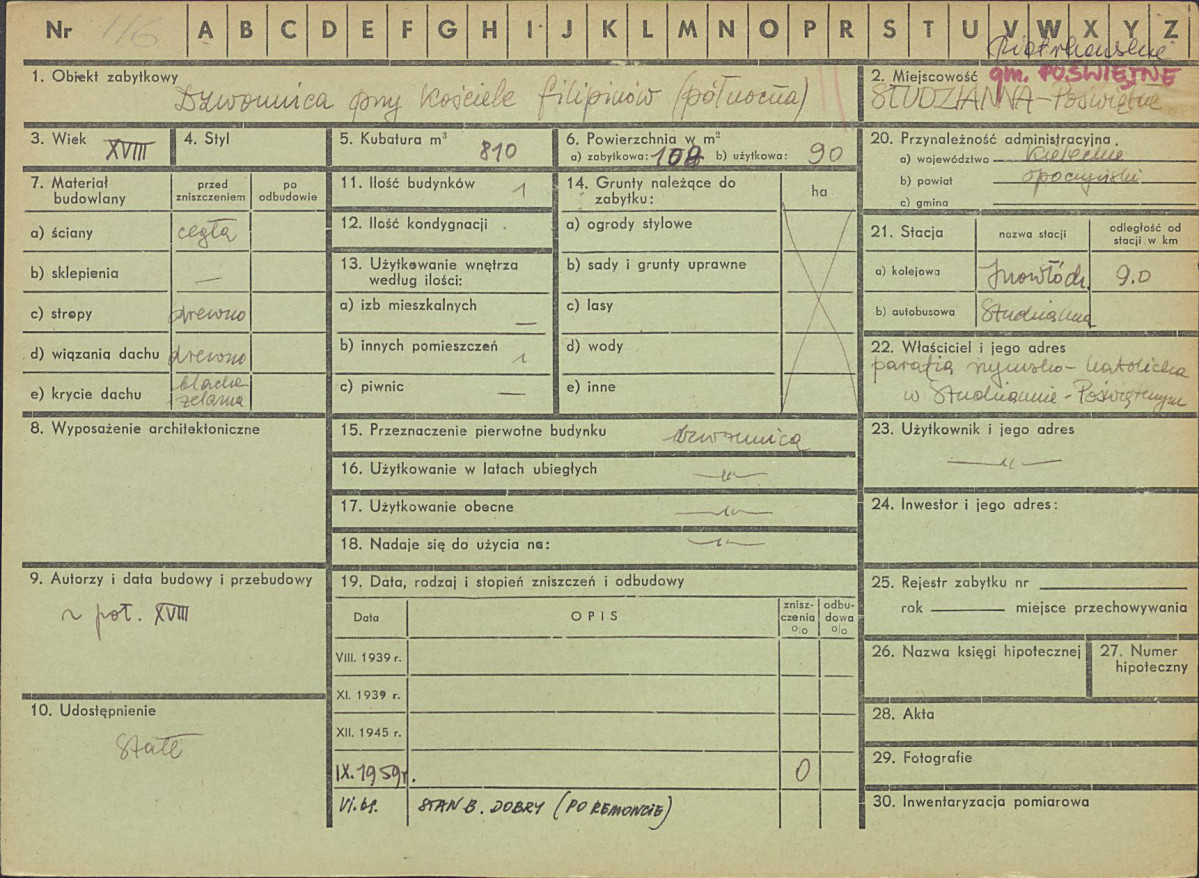 Nr 116 A B C D E F G H I J K L M N O P R S T U V W X Y Z
Piotrkowskie
1. Obiekt zabytkowy
Dzwonnica przy kościele filipinów (północna)
2. Miejscowość gm. POŚWIĘTNE
STUDZIANNA-Poświętne
3. Wiek XVIII
4. Styl
5. Kubatura m³ 810
6. Powierzchnia w m²
a) zabytkowa: b) użytkowa: 90
7. Materiał budowlany
przed zniszczeniem
po odbudowie
a) ściany cegła
b) sklepienia —
c) stropy drewno
d) wiązania dachu drewno
e) krycie dachu blacha żelazna
8. Wyposażenie architektoniczne
9. Autorzy i data budowy i przebudowy
2 poł. XVIII
10. Udostępnienie
Stałe
11. Ilość budynków 1
12. Ilość kondygnacji .
13. Użytkowanie wnętrza
według ilości:
a) izb mieszkalnych —
b) innych pomieszczeń 1
c) piwnic —
14. Grunty należące do
zabytku:
ha
a) ogrody stylowe
b) sady i grunty uprawne
c) lasy
d) wody
e) inne
15. Przeznaczenie pierwotne budynku dzwonnica
16. Użytkowanie w latach ubiegłych —"—
17. Użytkowanie obecne —"—
18. Nadaje się do użycia na: —"—
19. Data, rodzaj i stopień zniszczeń i odbudowy
Data OPIS znisz-czenia o/o odbu-dowa o/o
VIII. 1939 r.
XI. 1939 r.
XII. 1945 r.
IX. 1959 r. 0
VI. 61. STAN B. DOBRY (PO REMONCIE)
20. Przynależność administracyjna
a) województwo Kieleckie
b) powiat opoczyński
c) gmina
21. Stacja
nazwa stacji
odległość od
stacji w km
a) kolejowa Inowłódz. 9.0
b) autobusowa Studzianna
22. Właściciel i jego adres
parafia rzymsko-katolicka
w Studziannie-Poświętnym
23. Użytkownik i jego adres
—"—
24. Inwestor i jego adres:
25. Rejestr zabytku nr
rok miejsce przechowywania
26. Nazwa księgi hipotecznej
27. Numer
hipoteczny
28. Akta
29. Fotografie
30. Inwentaryzacja pomiarowa